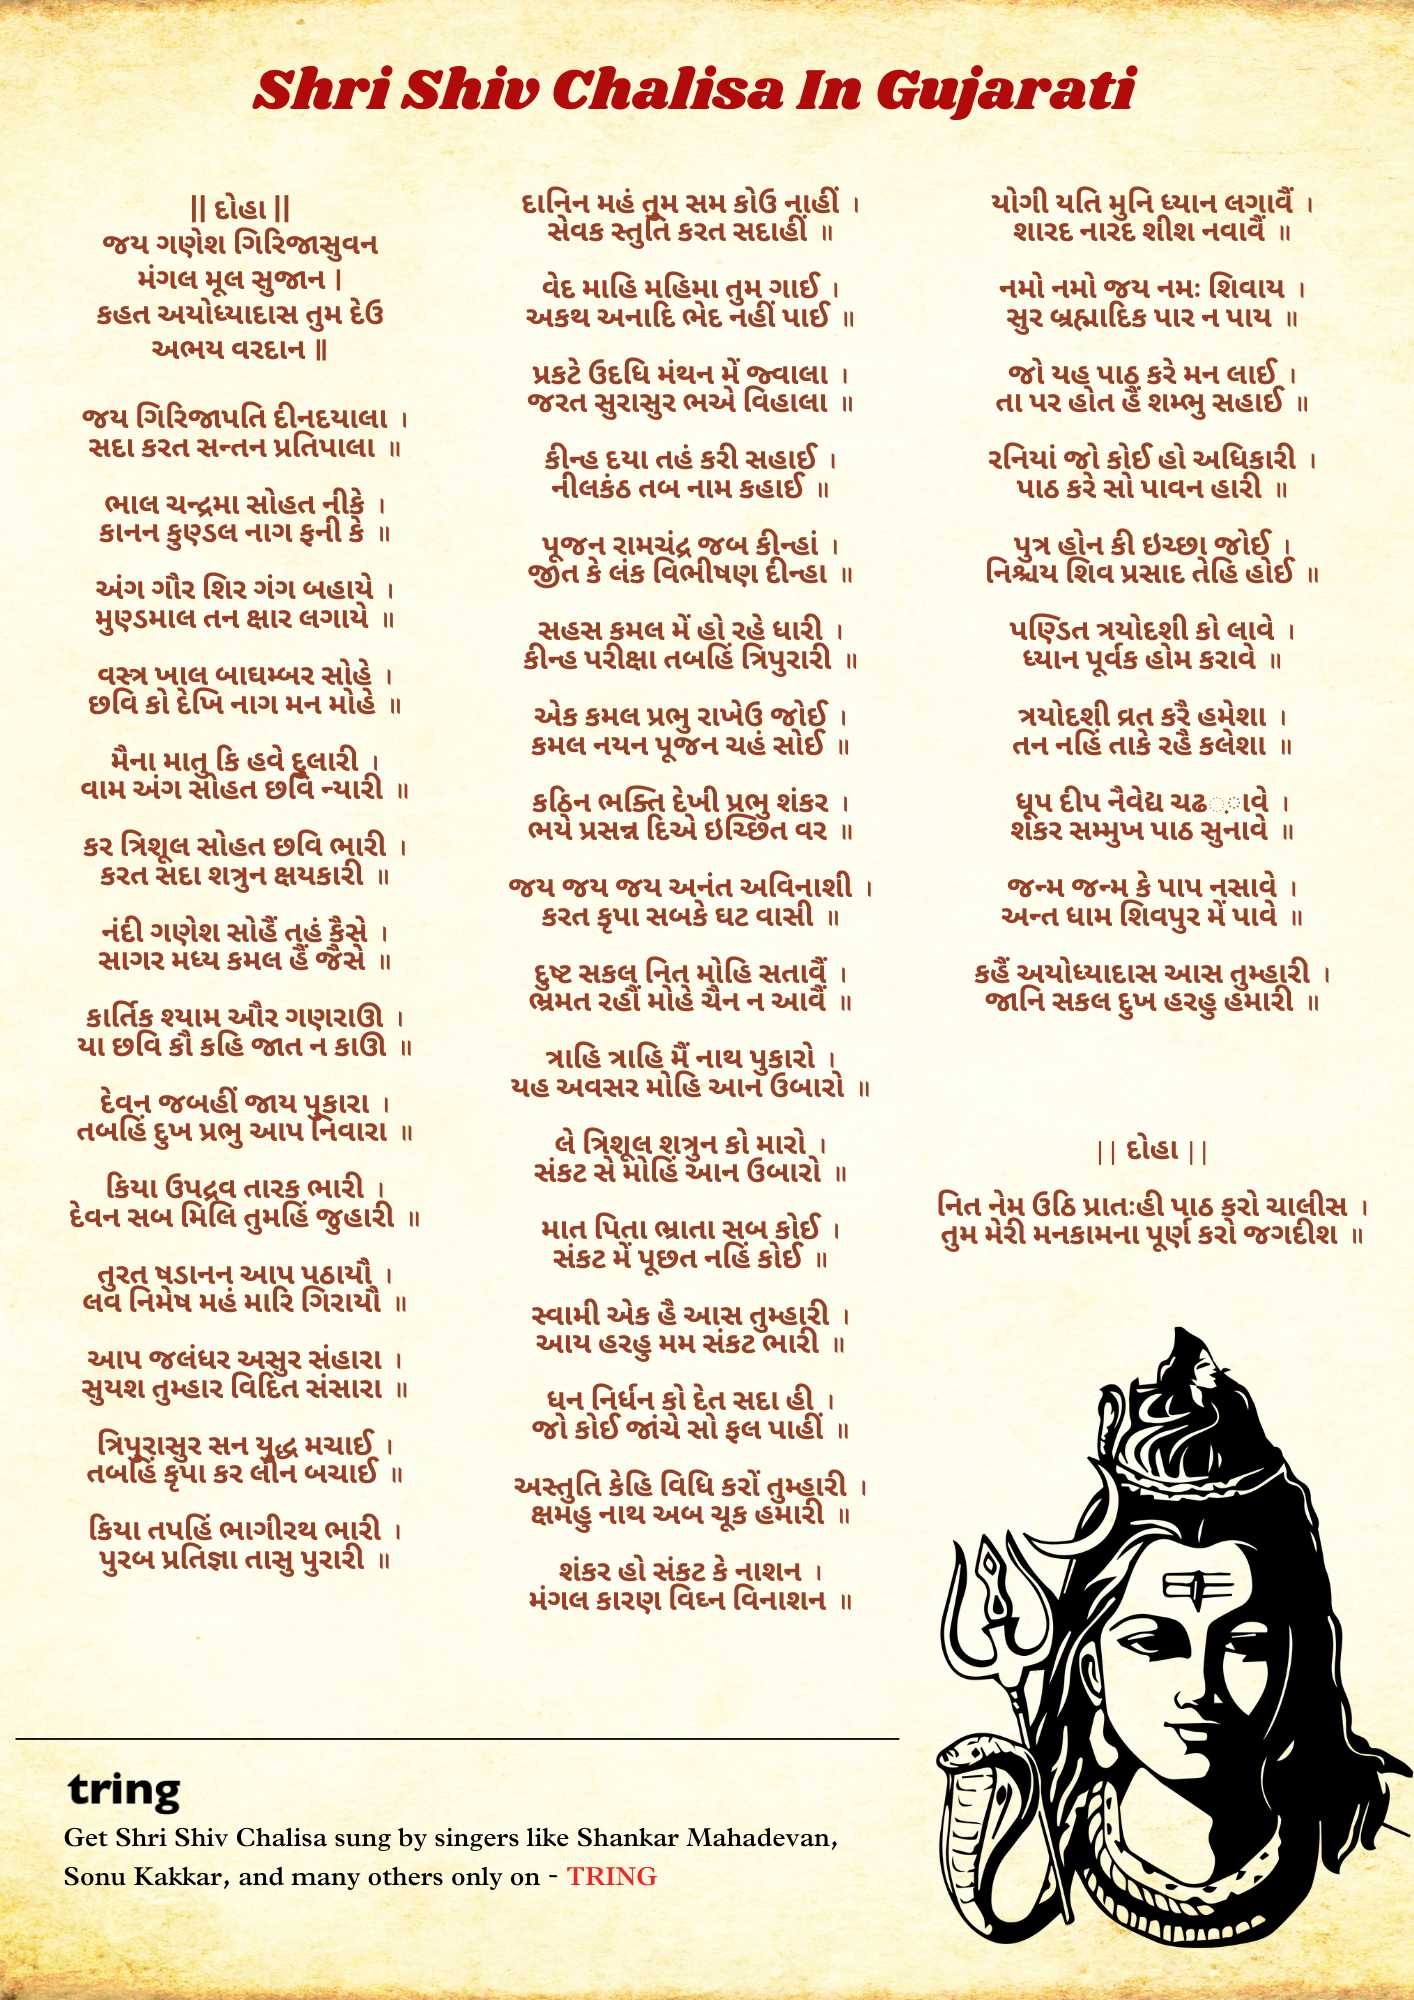 Shri Shiv Chalisa In Gujarati
|| દોહા ||
જય ગણેશ ગિરિજાસુવન
મંગલ મૂલ સુજાન |
કહત અયોધ્યાદાસ તુમ દેઉ
અભય વરદાન ||
જય ગિરિજાપતિ દીનદયાલા ।
સદા કરત સન્તન પ્રતિપાલા ॥
ભાલ ચન્દ્રમા સોહત નીકે ।
કાનન કુણ્ડલ નાગ ફની કે ॥
અંગ ગૌર શિર ગંગ બહાયે ।
મુણ્ડમાલ તન ક્ષાર લગાયે ॥
વસ્ત્ર ખાલ બાઘમ્બર સોહે ।
છવિ કો દેખિ નાગ મન મોહે ॥
મૈના માતુ કિ હવે દુલારી ।
વામ અંગ સોહત છવિ ન્યારી ॥
કર ત્રિશૂલ સોહત છવિ ભારી ।
કરત સદા શત્રુન ક્ષયકારી ॥
નંદી ગણેશ સોહૈં તહં કૈસે ।
સાગર મધ્ય કમલ હૈં જૈસે ॥
કાર્તિક શ્યામ ઔર ગણરાઊ ।
યા છવિ કૌ કહિ જાત ન કાઊ ॥
દેવન જબહીં જાય પુકારા ।
તબહિં દુખ પ્રભુ આપ નિવારા ॥
કિયા ઉપદ્રવ તારક ભારી ।
દેવન સબ મિલિ તુમહિં જુહારી ॥
તુરત ષડાનન આપ પઠાયૌ ।
લવ નિમેષ મહં મારિ ગિરાયૌ ॥
આપ જલંધર અસુર સંહારા ।
સુયશ તુમ્હાર વિદિત સંસારા ॥
ત્રિપુરાસુર સન યુદ્ધ મચાઈ ।
તબહિં કૃપા કર લીન બચાઈ ॥
કિયા તપહિં ભાગીરથ ભારી ।
પુરબ પ્રતિજ્ઞા તાસુ પુરારી ॥
દાનિન મહં તુમ સમ કોઉ નાહીં ।
સેવક સ્તુતિ કરત સદાહીં ॥
વેદ માહિ મહિમા તુમ ગાઈ ।
અકથ અનાદિ ભેદ નહીં પાઈ ॥
પ્રકટે ઉદધિ મંથન મેં જ્વાલા ।
જરત સુરાસુર ભએ વિહાલા ॥
કીન્હ દયા તહં કરી સહાઈ ।
નીલકંઠ તબ નામ કહાઈ ॥
પૂજન રામચંદ્ર જબ કીન્હાં ।
જીત કે લંક વિભીષણ દીન્હા ॥
સહસ કમલ મેં હો રહે ધારી ।
કીન્હ પરીક્ષા તબહિં ત્રિપુરારી ॥
એક કમલ પ્રભુ રાખેઉ જોઈ ।
કમલ નયન પૂજન ચહં સોઈ ॥
કઠિન ભક્તિ દેખી પ્રભુ શંકર ।
ભયે પ્રસન્ન દિએ ઇચ્છિત વર ॥
જય જય જય અનંત અવિનાશી ।
કરત કૃપા સબકે ઘટ વાસી ॥
દુષ્ટ સકલ નિત મોહિ સતાવૈં ।
ભ્રમત રહૌં મોહે ચૈન ન આવૈં ॥
ત્રાહિ ત્રાહિ મૈં નાથ પુકારો ।
યહ અવસર મોહિ આન ઉબારો ॥
લે ત્રિશૂલ શત્રુન કો મારો ।
સંકટ સે મોહિં આન ઉબારો ॥
માત પિતા ભ્રાતા સબ કોઈ ।
સંકટ મેં પૂછત નહિં કોઈ ॥
સ્વામી એક હૈ આસ તુમ્હારી ।
આય હરહુ મમ સંકટ ભારી ॥
ધન નિર્ધન કો દેત સદા હી ।
જો કોઈ જાંચે સો ફલ પાહીં ॥
અસ્તુતિ કેહિ વિધિ કરોં તુમ્હારી ।
ક્ષમહુ નાથ અબ ચૂક હમારી ॥
શંકર હો સંકટ કે નાશન ।
મંગલ કારણ વિઘ્ન વિનાશન ॥
યોગી યતિ મુનિ ધ્યાન લગાવૈં ।
શારદ નારદ શીશ નવાવૈં ॥
નમો નમો જય નમઃ શિવાય ।
સુર બ્રહ્માદિક પાર ન પાય ॥
જો યહ પાઠ કરે મન લાઈ ।
તા પર હોત હૈં શમ્ભુ સહાઈ ॥
રનિયાં જો કોઈ હો અધિકારી ।
પાઠ કરે સો પાવન હારી ॥
પુત્ર હોન કી ઇચ્છા જોઈ ।
નિશ્ચય શિવ પ્રસાદ તેહિ હોઈ ॥
પણ્ડિત ત્રયોદશી કો લાવે ।
ધ્યાન પૂર્વક હોમ કરાવે ॥
ત્રયોદશી વ્રત કરૈ હમેશા ।
તન નહિં તાકે રહૈ કલેશા ॥
ધૂપ દીપ નૈવેદ્ય ચઢ઼ાવે ।
શંકર સમ્મુખ પાઠ સુનાવે ॥
જન્મ જન્મ કે પાપ નસાવે ।
અન્ત ધામ શિવપુર મેં પાવે ॥
કહૈં અયોધ્યાદાસ આસ તુમ્હારી ।
જાનિ સકલ દુખ હરહુ હમારી ॥
|| દોહા ||
નિત નેમ ઉઠિ પ્રાતઃહી પાઠ કરો ચાલીસ ।
તુમ મેરી મનકામના પૂર્ણ કરો જગદીશ ॥
tring
Get Shri Shiv Chalisa sung by singers like Shankar Mahadevan,
Sonu Kakkar, and many others only on - TRING